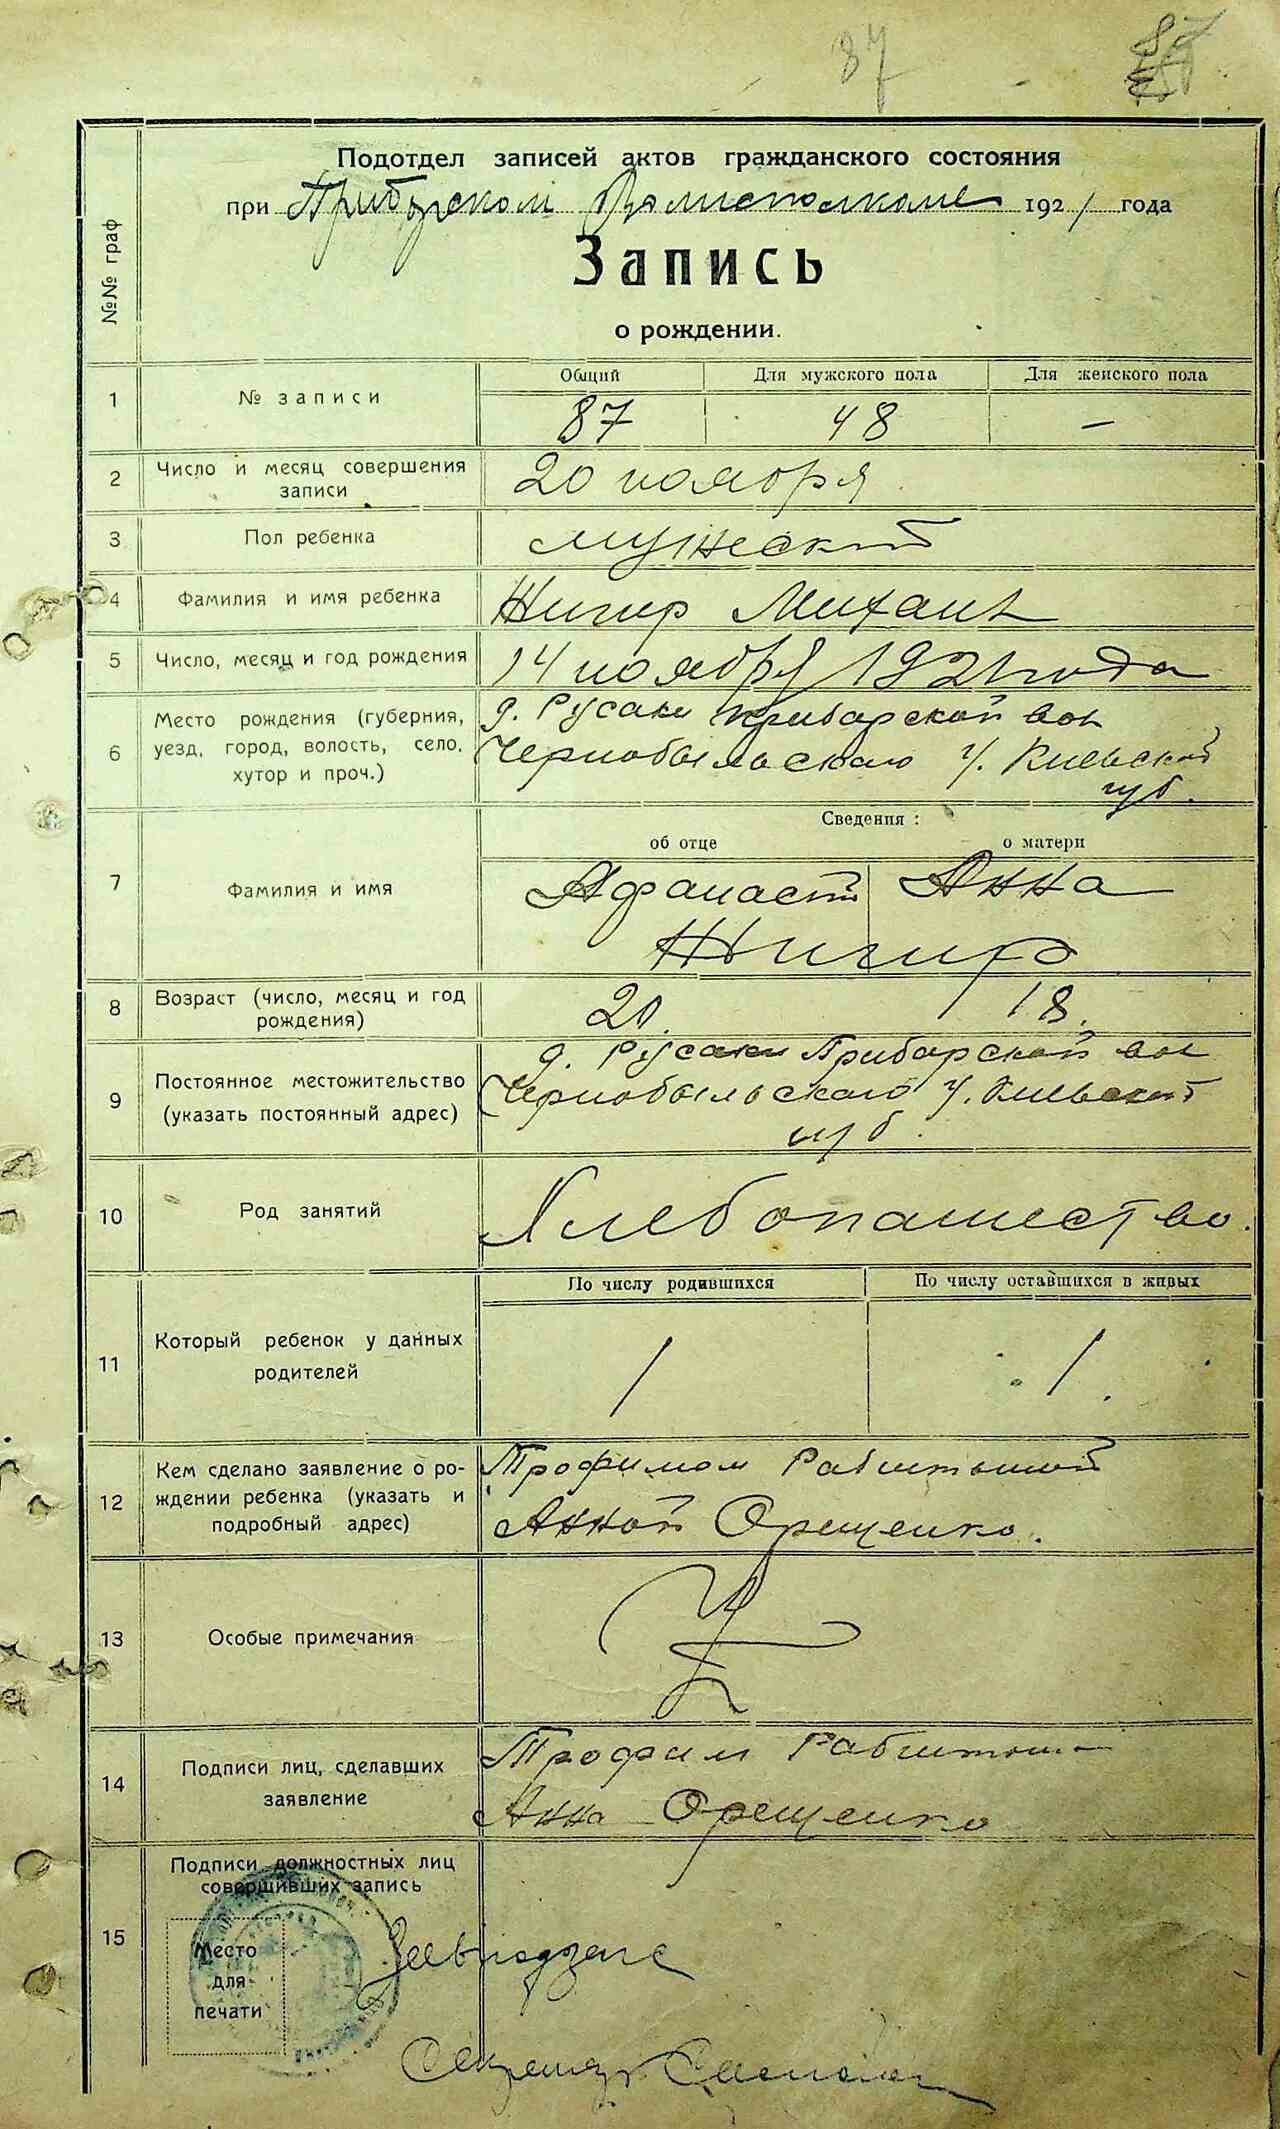 87
Подотдел записей актов гражданского состояния
при Прибарском Волисполкоме 1921 года
Запись
о рождении.
№№ граф
1 № записи
Общий Для мужского пола Для женского пола
87 48 —
2 Число и месяц совершения
записи
20 ноября
3 Пол ребенка
мужеский
4 Фамилия и имя ребенка
Жигир Михаил
5 Число, месяц и год рождения
14 ноября 1921 года
6 Место рождения (губерния,
уезд, город, волость, село,
хутор и проч.)
д. Русаки Прибарской вол
Чернобыльскаго у. Киевской
губ.
Сведения:
об отце о матери
7 Фамилия и имя
Афанасий Анна
Жигир
8 Возраст (число, месяц и год
рождения)
20. 18.
9 Постоянное местожительство
(указать постоянный адрес)
д. Русаки Прибарской вол
Чернобыльскаго у. Киевской
губ.
10 Род занятий
Хлебопашество.
По числу родившихся По числу оставшихся в живых
11 Который ребенок у данных
родителей
1 1.
12 Кем сделано заявление о ро-
ждении ребенка (указать и
подробный адрес)
Трофимом
Анной Орещенко.
13 Особые примечания
14 Подписи лиц, сделавших
заявление
Трофим
Анна Орещенко
15 Подписи должностных лиц
совершивших запись
Место
для
печати
Завподзагс
Секретарь